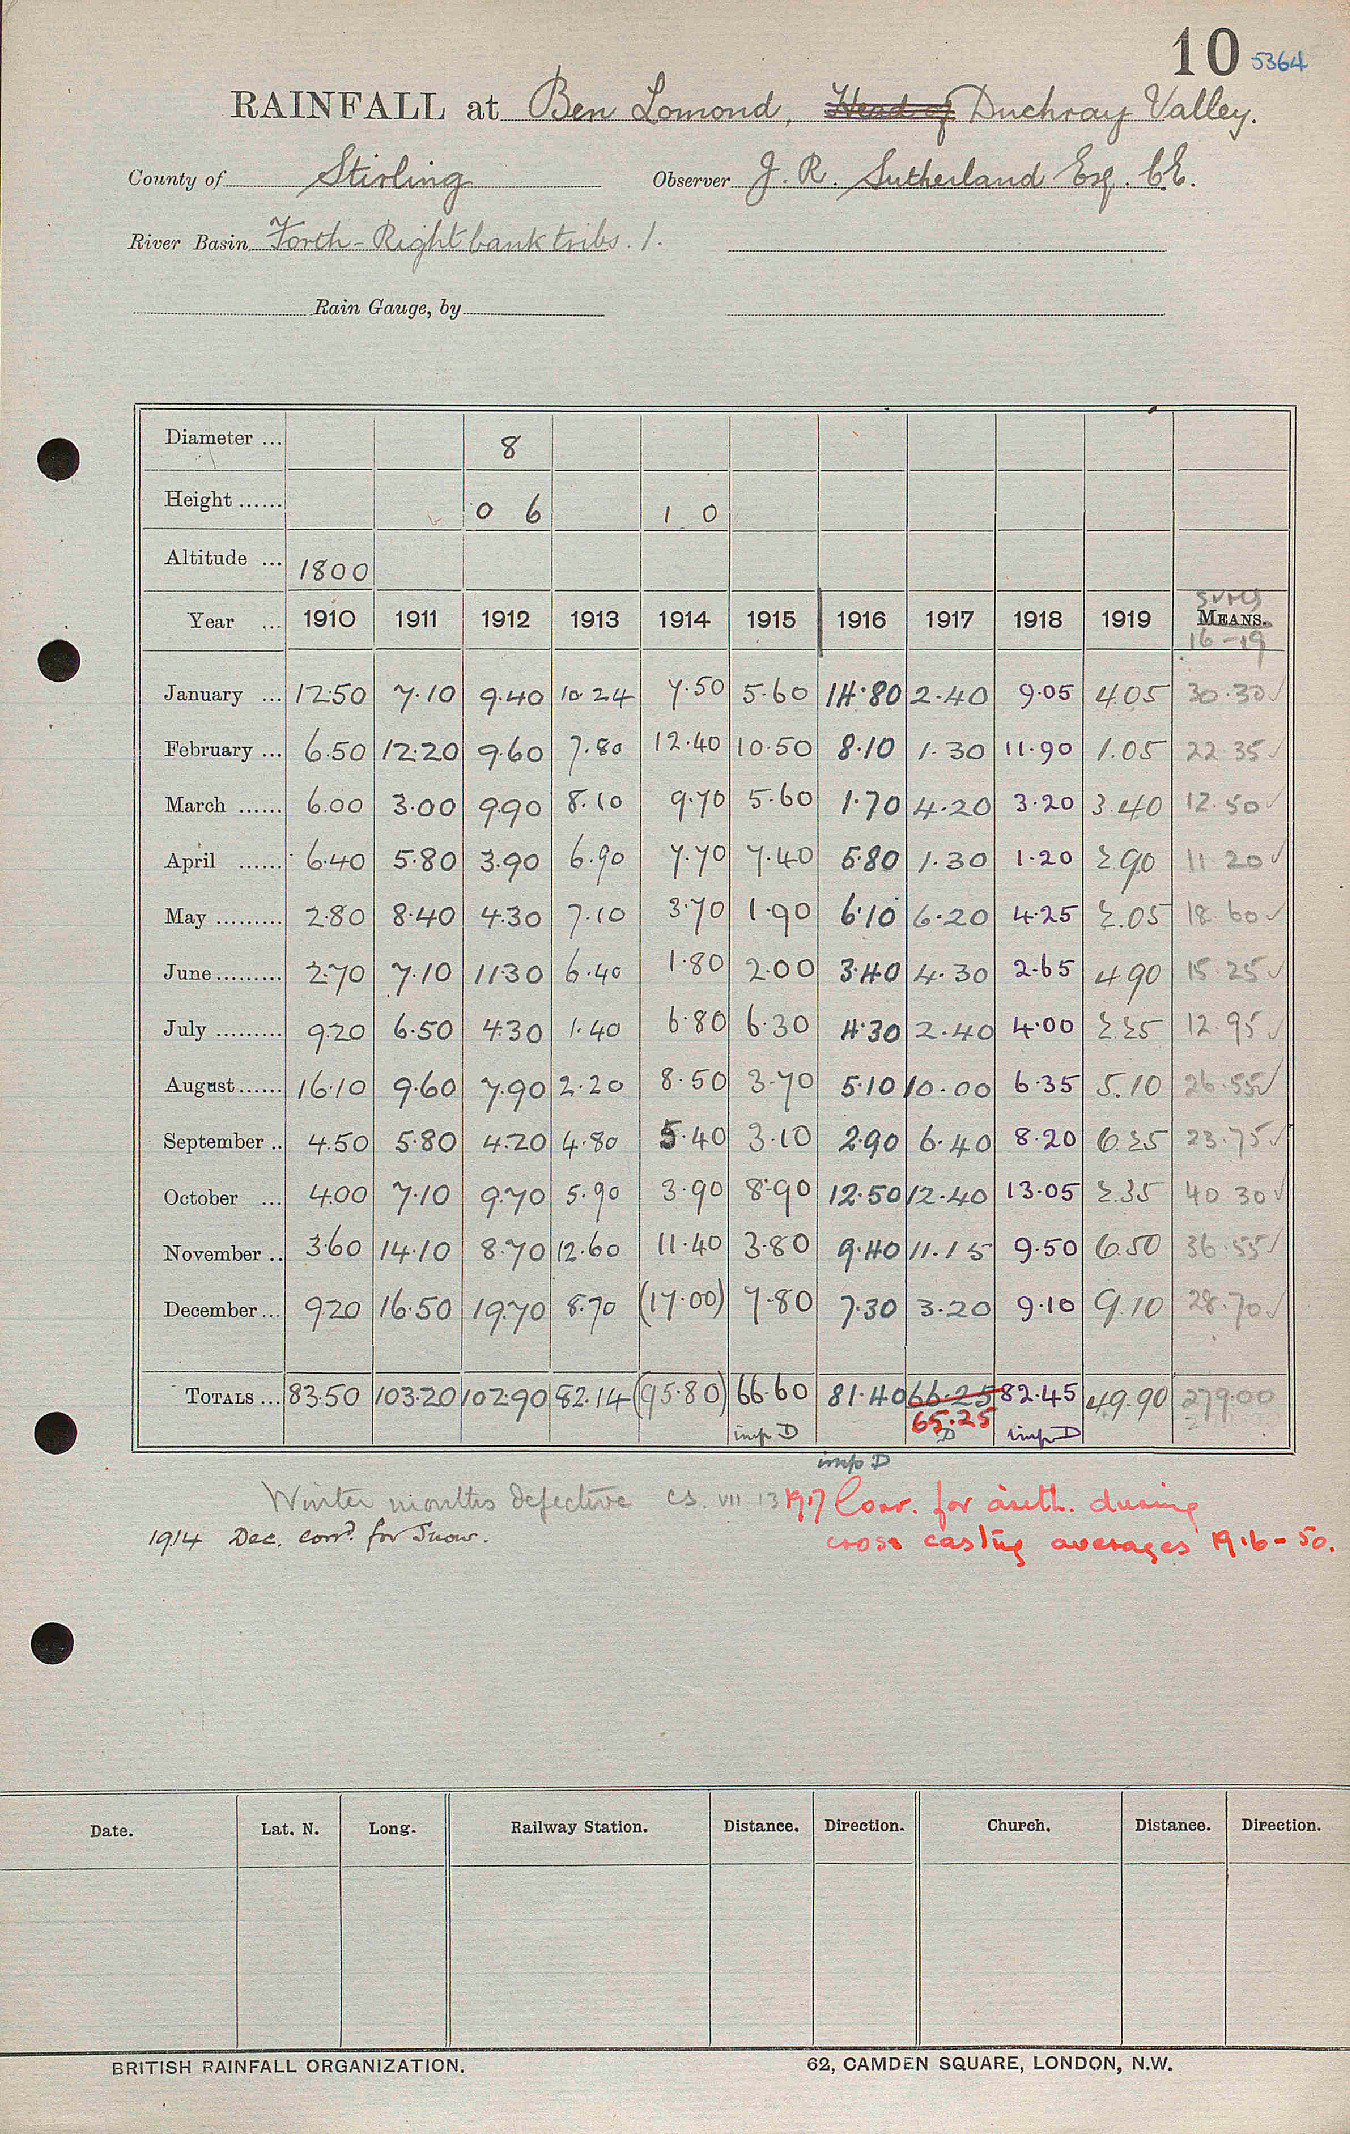 10 5364
RAINFALL at Ben Lomond, Head of Duchray Valley.
County of Stirling Observer J. R. Sutherland Esq. C.E.
River Basin Forth - Right bank tribs. 1.
Rain Gauge, by
Diameter ... 8
Height ...... 0 6 1 0
Altitude ... 1800
sums
Year ... 1910 1911 1912 1913 1914 1915 1916 1917 1918 1919 MEANS.
16-19
January ... 12.50 7.10 9.40 10.24 7.50 5.60 14.80 2.40 9.05 4.05 30.30 ✓
February ... 6.50 12.20 9.60 7.80 12.40 10.50 8.10 1.30 11.90 1.05 22.35 ✓
March ...... 6.00 3.00 9.90 8.10 9.70 5.60 1.70 4.20 3.20 3.40 12.50 ✓
April ...... 6.40 5.80 3.90 6.90 7.70 7.40 5.80 1.30 1.20 2.90 11.20 ✓
May ......... 2.80 8.40 4.30 7.10 3.70 1.90 6.10 6.20 4.25 2.05 18.60 ✓
June ......... 2.70 7.10 11.30 6.40 1.80 2.00 3.40 4.30 2.65 4.90 15.25 ✓
July ......... 9.20 6.50 4.30 1.40 6.80 6.30 4.30 2.40 4.00 2.25 12.95 ✓
August ...... 16.10 9.60 7.90 2.20 8.50 3.70 5.10 10.00 6.35 5.10 26.55 ✓
September .. 4.50 5.80 4.20 4.80 5.40 3.10 2.90 6.40 8.20 6.25 23.75 ✓
October ... 4.00 7.10 9.70 5.90 3.90 8.90 12.50 12.40 13.05 2.35 40.30 ✓
November .. 3.60 14.10 8.70 12.60 11.40 3.80 9.40 11.15 9.50 6.50 36.55 ✓
December ... 9.20 16.50 19.70 8.70 (17.00) 7.80 7.30 3.20 9.10 9.10 28.70 ✓
TOTALS ... 83.50 103.20 102.90 82.14 (95.80) 66.60 81.40 66.25 82.45 49.90 279.00
65.25
imp D D imp D
imp D
Winter months defective CS. VII 13 1917 Corr. for arith. during
1914 Dec. corrd. for Snow. cross casting averages 1916-50.
Date. Lat. N. Long. Railway Station. Distance. Direction. Church. Distance. Direction.
BRITISH RAINFALL ORGANIZATION. 62, CAMDEN SQUARE, LONDON, N.W.